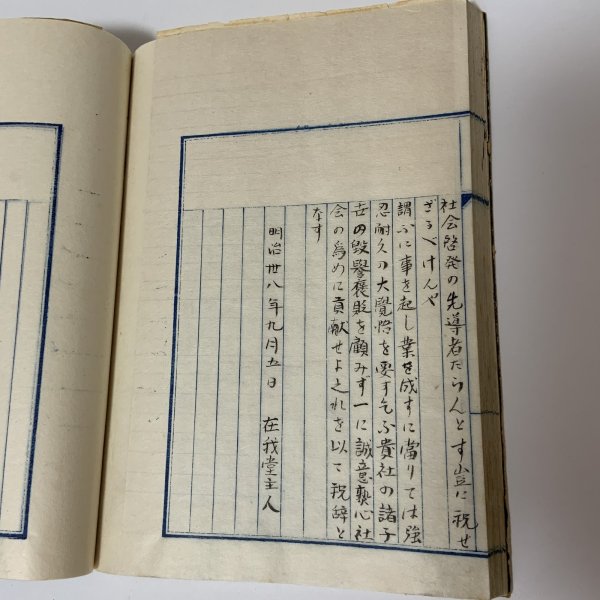 社会啓発の先導者たらんとす豈に祝せ
ざるべけんや
謂ふに事を起し業を成すに當りては強
忍耐久の大覺悟を要す乞ふ貴社の諸子
世の毀譽褒貶を顧みず一に誠意熱心社
会の為めに貢献せよこれを以て祝辞と
なす
明治卅八年九月五日 在我堂主人